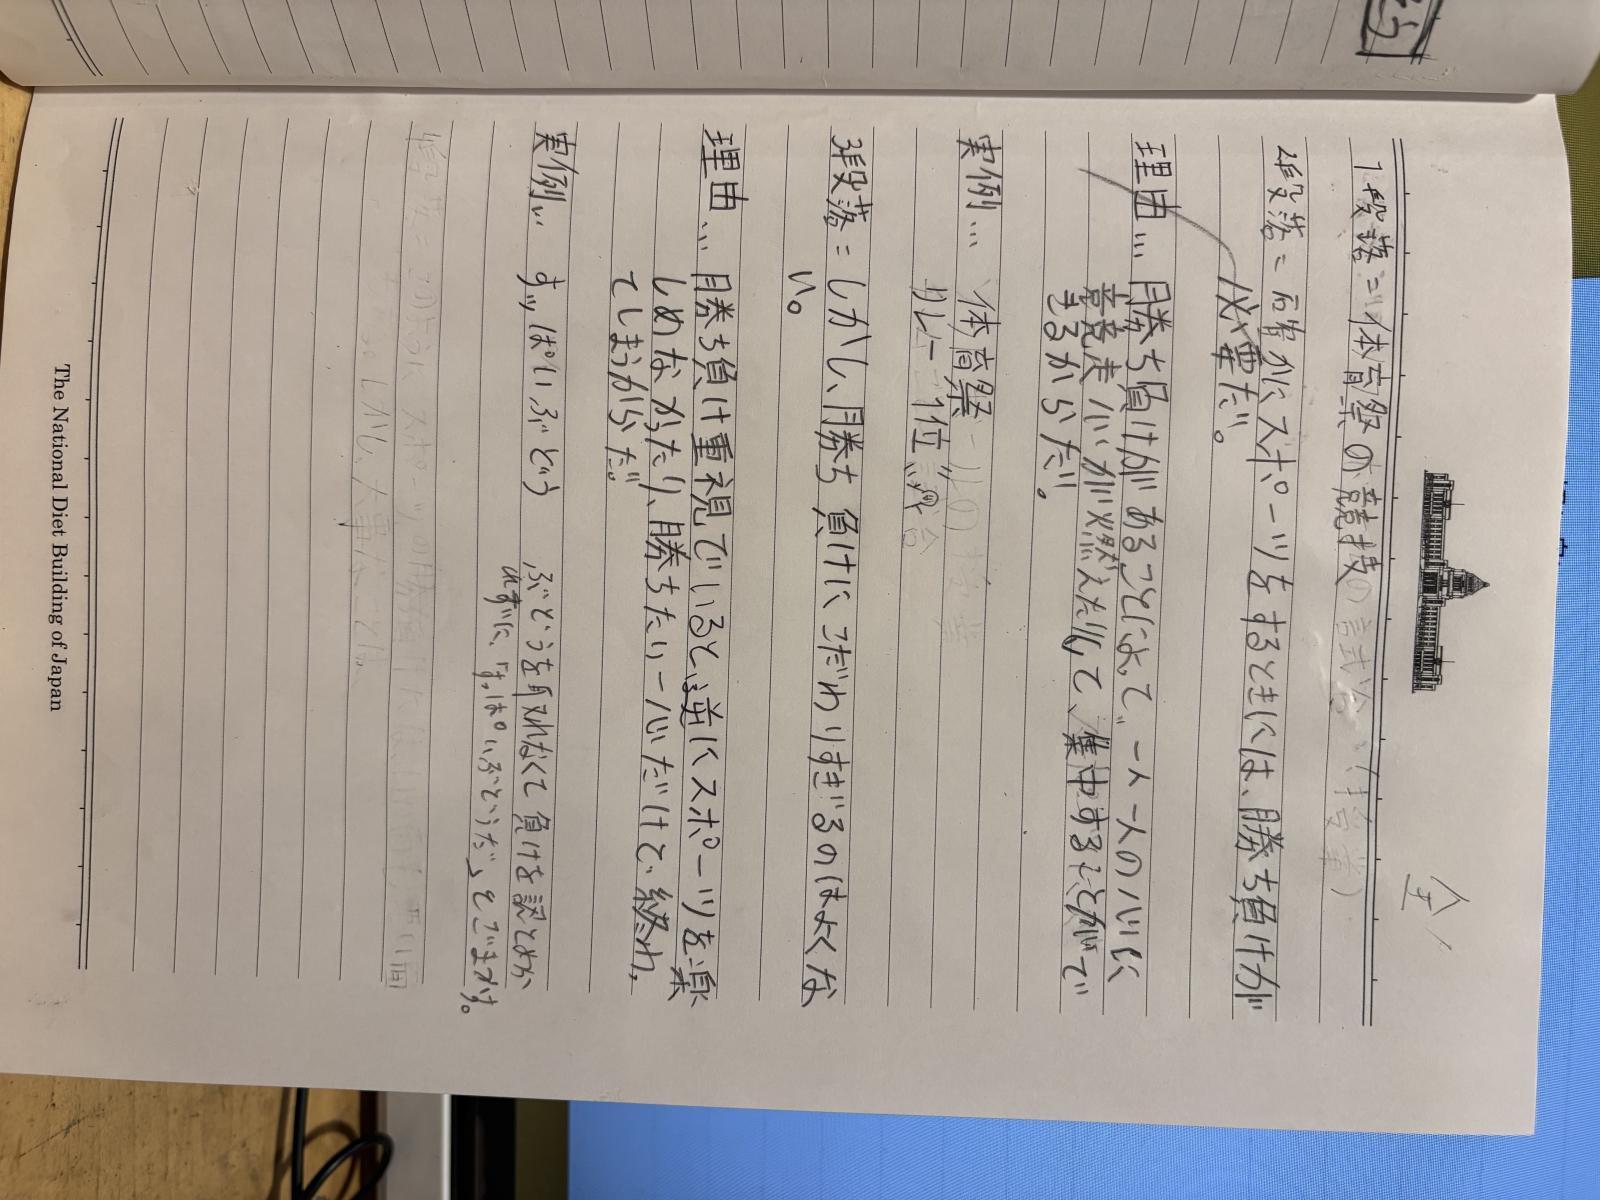 1段落=体育祭の競技の試合(授業)
2段落=確かにスポーツをするときには、勝ち負けが
必要だ。
理由… 勝ち負けがあることによって、一人一人の心に
競走心が燃えたりして、集中することがで
きるからだ。
実例… 体育祭
リレー 位
3段落=しかし、勝ち負けにこだわりすぎるのはよくな
い。
理由… 勝ち負け重視でいると、逆にスポーツを楽
しめなかったり、勝ちたい一心だけで、終わっ
てしまうからだ。
実例… すっぱいぶどう ぶどうを取れなくて負けを認とめら
れずに、「すっぱいぶどうだ」とごまかす。
スポーツの勝ち負けには、
しかし、大事なことは、
The National Diet Building of Japan